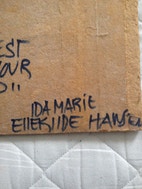 EST
OUR
D"
IDA MARIE
ELLEKILDE HANSEN